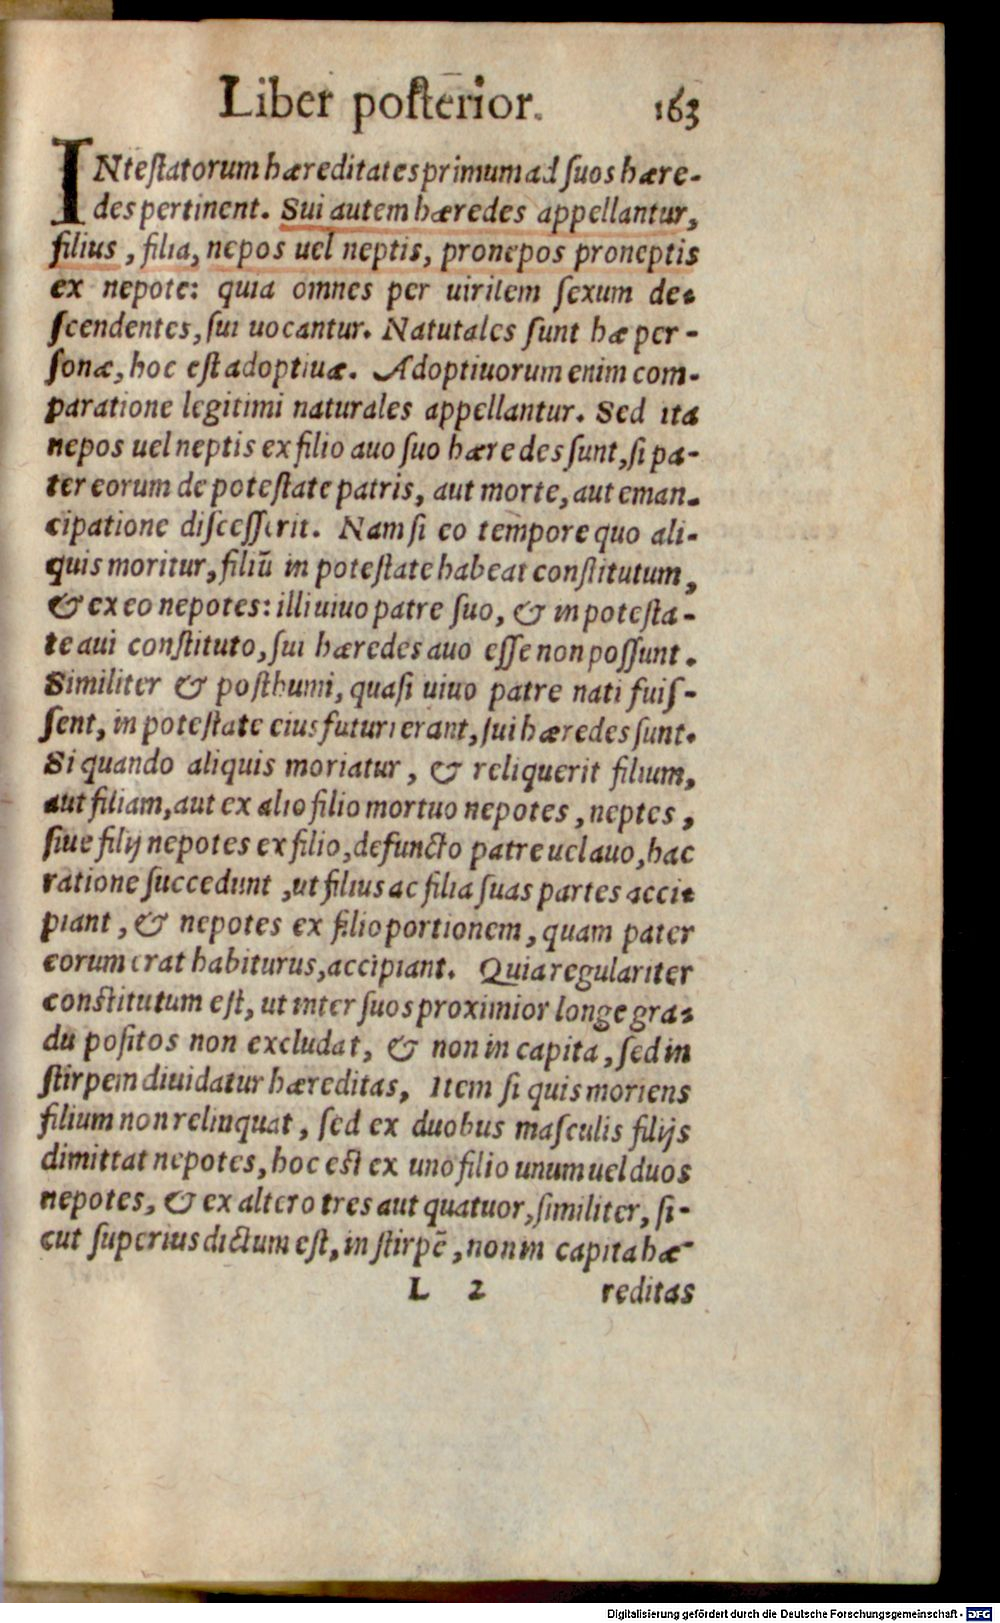 Liber posterior. 163
INtestatorum hæreditates primum ad suos hære-
des pertinent. Sui autem hæredes appellantur,
filius, filia, nepos uel neptis, pronepos proneptis
ex nepote: quia omnes per uirilem sexum de-
scendentes, sui uocantur. Natutales sunt hæ per-
sonæ, hoc est adoptiuæ. Adoptiuorum enim com-
paratione legitimi naturales appellantur. Sed ita
nepos uel neptis ex filio auo suo hæredes sunt, si pa-
ter eorum de potestate patris, aut morte, aut eman-
cipatione discesserit. Nam si eo tempore quo ali-
quis moritur, filiũ in potestate habeat constitutum,
& ex eo nepotes: illi uiuo patre suo, & in potesta-
te aui constituto, sui hæredes auo esse non possunt.
Similiter & posthumi, quasi uiuo patre nati fuis-
sent, in potestate eius futuri erant, sui hæredes sunt.
Si quando aliquis moriatur, & reliquerit filium,
aut filiam, aut ex alio filio mortuo nepotes, neptes,
siue filij nepotes ex filio, defuncto patre uel auo, hac
ratione succedunt, ut filius ac filia suas partes acci-
piant, & nepotes ex filio portionem, quam pater
eorum erat habiturus, accipiant. Quia regulariter
constitutum est, ut inter suos proximior longe gra-
du positos non excludat, & non in capita, sed in
stirpem diuidatur hæreditas, Item si quis moriens
filium non relinquat, sed ex duobus masculis filijs
dimittat nepotes, hoc est ex uno filio unum uel duos
nepotes, & ex altero tres aut quatuor, similiter, si-
cut superius dictum est, in stirpẽ, non in capita hæ-
L 2 reditas
Digitalisierung gefördert durch die Deutsche Forschungsgemeinschaft - DFG